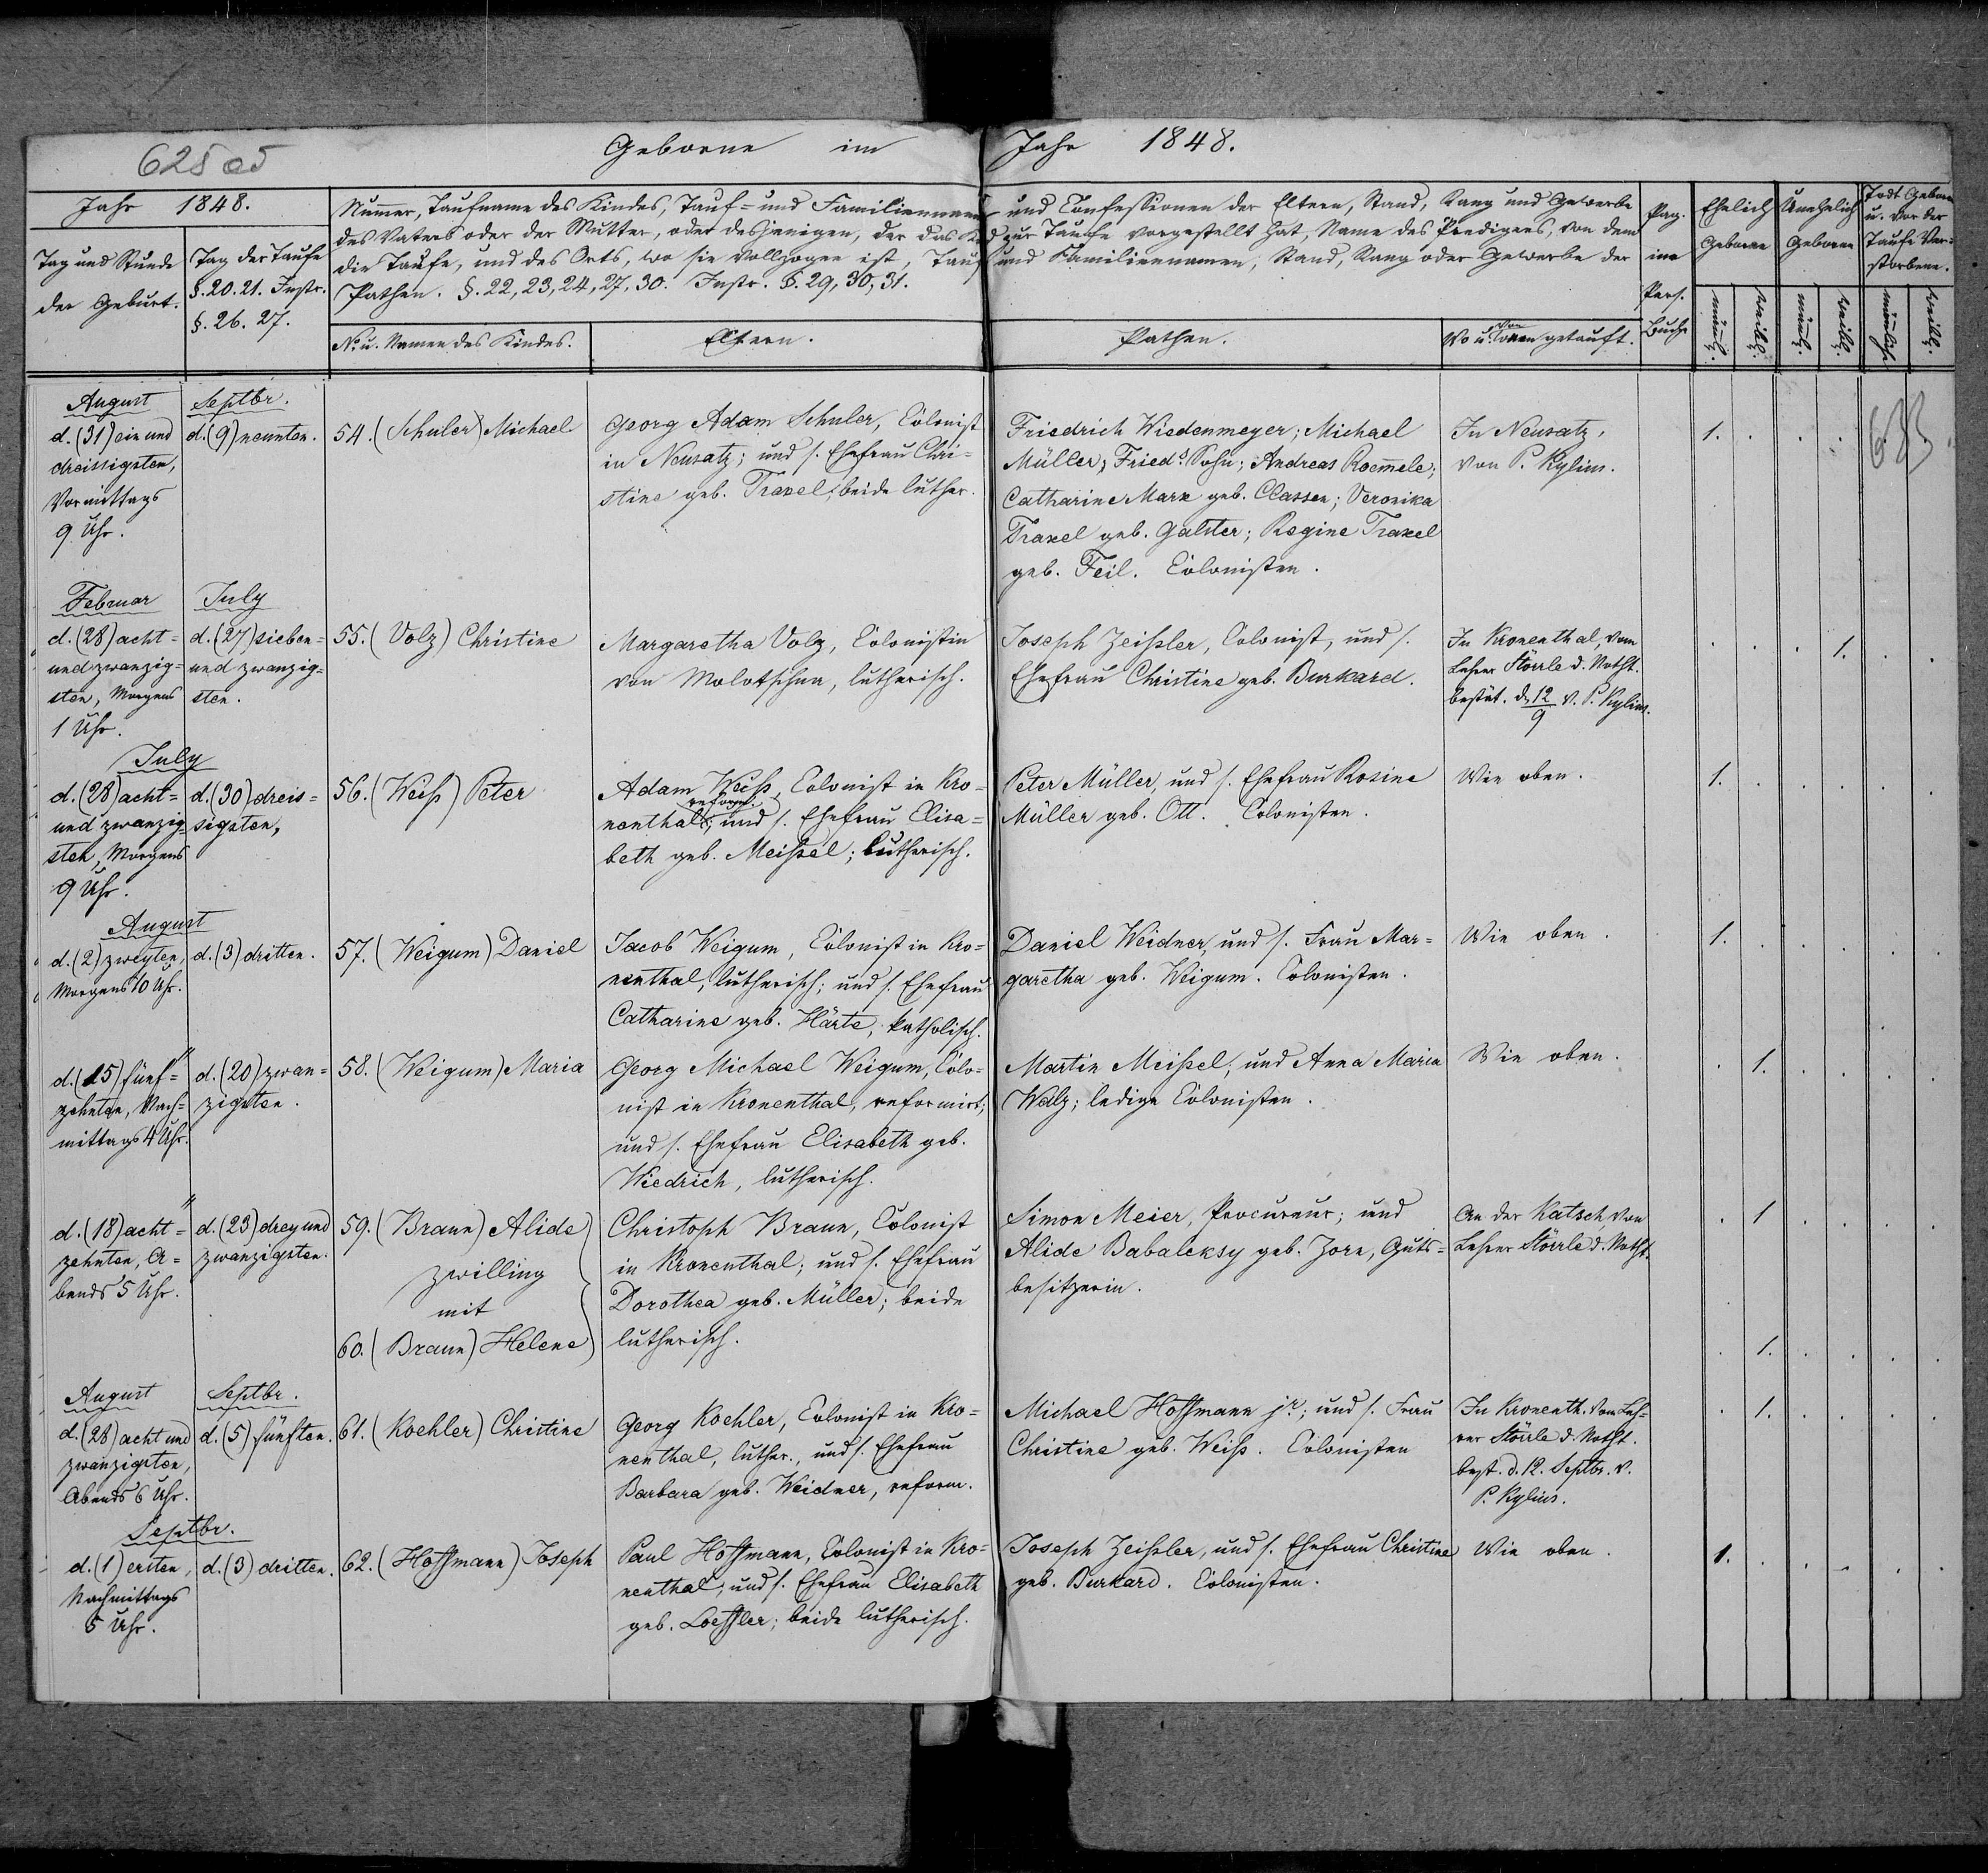 Geborne im Jahr 1848.
625
Jahr 1848.
Tag und Stunde
der Geburt.
Tag der Taufe
§. 20. 21. Instr.
§. 26. 27.
Numer, Taufname des Kindes, Tauf- und Familiennamen und Confessionen der Eltern, Stand, Rang und Gewerbe
des Vaters oder der Mutter, oder desjenigen, der das Kind zur Taufe vorgestellt hat, Name des Predigers, von dem
die Taufe, und des Orts, wo sie vollzogen ist, Tauf und Familiennamen, Stand, Rang oder Gewerbe der
Pathen. §. 22, 23, 24, 27, 30. Instr. §. 29, 30, 31.
No. u. Namen des Kindes.
Eltern.
Pathen.
Wo u. von wem getauft.
Pag.
im
Pers.
Buche
Ehelich
Geborne
Unehelich
Geborne
Todt Geborne
u. vor der
Taufe Ver=
storbene.
männl.
weibl.
männl.
weibl.
männlich
weibl.
August
d. (31) ein und
dreissigsten,
Vormittags
9 Uhr.
Septbr.
d. (9) neunten.
54. (Schuler) Michael.
Georg Adam Schuler, Colonist
in Neusatz; und s. Ehefrau Chri=
stine geb. Traxel; beide luther.
Friedrich Wiedenmeyer; Michael
Müller, Fried.s Sohn; Andreas Roemele;
Catharine Marx geb. Classen; Veronika
Traxel geb. Galster; Regine Traxel
geb. Feil. Colonisten.
In Neusatz,
von P. Kylius.
1.
633
Februar
d. (28) acht=
und zwanzig=
sten, Morgens
1 Uhr.
July
d. (27) sieben=
und zwanzig=
sten.
55. (Volz) Christine
Margaretha Volz, Colonistin
von Molotschna, lutherisch.
Joseph Zeissler, Colonist, und s.
Ehefrau Christine geb. Burkard.
In Kronenthal, vom
Lehrer Störrle d. Notht.
bestät. d. 12/9 v. P. Kylius.
1.
July
d. (28) acht=
und zwanzig=
sten, Morgens
9 Uhr.
d. (30) dreis=
sigsten,
56. (Weiß) Peter
Adam Weiß, Colonist in Kro=
nenthal, reform. und s. Ehefrau Elisa=
beth geb. Meißel; lutherisch.
Peter Müller, und s. Ehefrau Rosine
Müller geb. Ott. Colonisten.
Wie oben.
1.
August
d. (2) zweyten,
Morgens 10 Uhr.
d. (3) dritten.
57. (Weigum) Daniel
Jacob Weigum, Colonist in Kro=
nenthal, lutherisch; und s. Ehefrau
Catharine geb. Härte, katholisch.
Daniel Weidner, und s. Frau Mar=
garetha geb. Weigum. Colonisten.
Wie oben.
1.
"
d. (15) fünf=
zehnten, Nach=
mittags 4 Uhr.
d. (20) zwan=
zigsten.
58. (Weigum) Maria
Georg Michael Weigum, Colo=
nist in Kronenthal, reformirt;
und s. Ehefrau Elisabeth geb.
Wiedrich, lutherisch.
Martin Meißel, und Anna Maria
Walz; ledige Colonisten.
Wie oben.
1.
"
d. (18) acht=
zehnten, A=
bends 5 Uhr.
d. (23) drey und
zwanzigsten.
59. (Braun) Alide
zwilling
mit
60. (Braun) Helene
Christoph Braun, Colonist
in Kronenthal; und s. Ehefrau
Dorothea geb. Müller; beide
lutherisch.
Simon Meier, Procureur; und
Alide Babaleksy geb. Zorn, Guts=
besitzerin.
An der Katsch, von
Lehrer Störrle d. Notht.
1
1.
August
d. (28) acht und
zwanzigsten,
Abends 6 Uhr.
Septbr.
d. (5) fünften.
61. (Koehler) Christine
Georg Koehler, Colonist in Kro=
nenthal, luther., und s. Ehefrau
Barbara geb. Weidner, reform.
Michael Hoffmann jr.; und s. Frau
Christine geb. Weiß. Colonisten
In Kronenth. vom Leh=
rer Störrle d. Notht.
best. d. 12. Septbr. v.
P. Kylius.
1.
Septbr.
d. (1) ersten,
Nachmittags
5 Uhr.
d. (3) dritten.
62. (Hoffmann) Joseph
Paul Hoffmann, Colonist in Kro=
nenthal, und s. Ehefrau Elisabeth
geb. Loeffler; beide lutherisch.
Joseph Zeissler, und s. Ehefrau Christine
geb. Burkard. Colonisten.
Wie oben.
1.